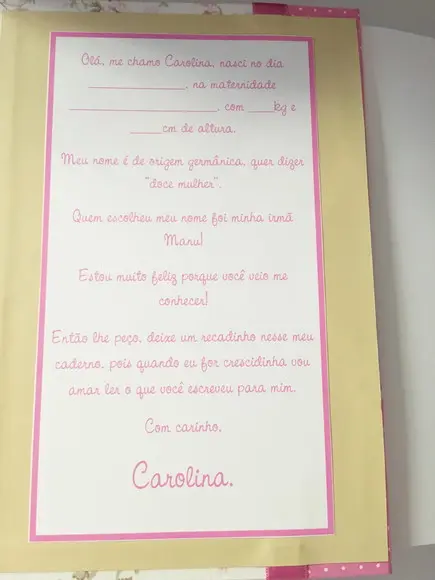 Olá, me chamo Carolina, nasci no dia
_______________, na maternidade
_______________________, com ____kg e
_____cm de altura.
Meu nome é de origem germânica, quer dizer
"doce mulher".
Quem escolheu meu nome foi minha irmã
Manu!
Estou muito feliz porque você veio me
conhecer!
Então lhe peço, deixe um recadinho nesse meu
caderno, pois quando eu for crescidinha vou
amar ler o que você escreveu para mim.
Com carinho,
Carolina.